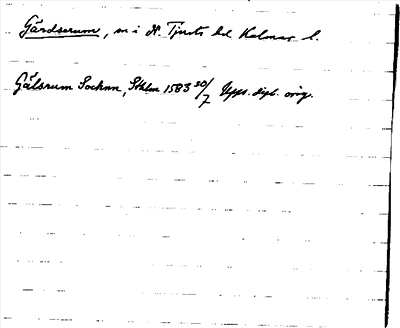 Gärdserum, sn i N. Tjusts hd Kalmar l.
Gålsrum Sochnn, Sthlm 1583 30/7 Upps. dipl. orig.